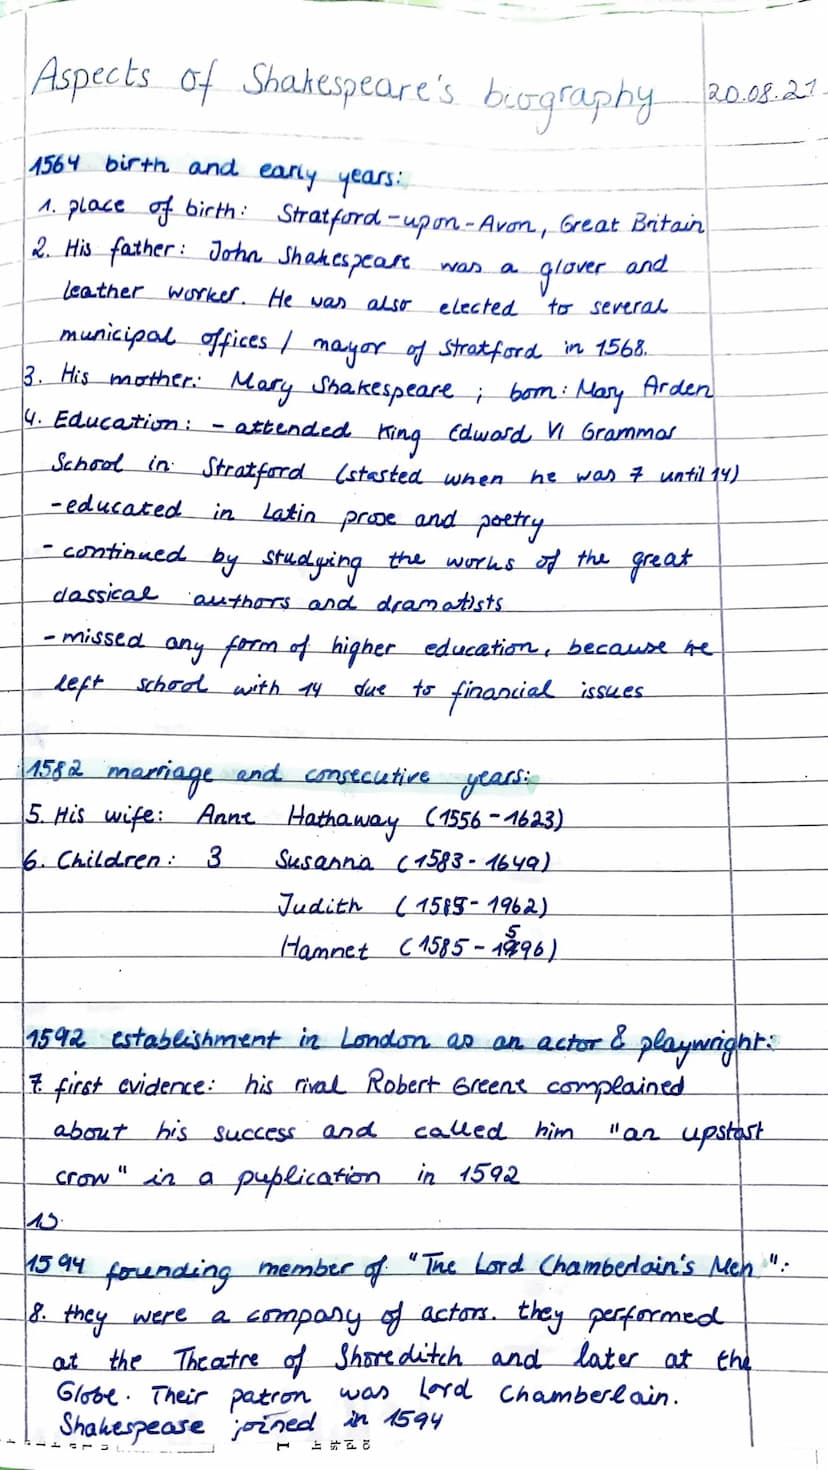 Aspects of Shakespeare's biography 20.08.21
1564 birth and early years:
1. place of birth: Stratford-upon-Avon, Great Britain
2. His father: John Shakespeare was a glover and
leather worker. He was also elected to several
municipal offices / mayor of Stratford in 1568.
3. His mother: Mary Shakespeare ; born: Mary Arden
4. Education: - attended King Edward VI Grammar
School in Stratford (started when he was 7 until 14)
- educated in Latin prose and poetry
- continued by studying the works of the great
classical authors and dramatists
- missed any form of higher education, because he
left school with 14 due to financial issues
1582 marriage and consecutive years:
5. His wife: Anne Hathaway (1556 - 1623)
6. Children: 3 Susanna (1583 - 1649)
Judith (1585 - 1962)
Hamnet (1585 - 1596)
1592 establishment in London as an actor & playwright:
7. first evidence: his rival Robert Greene complained
about his success and called him "an upstart
crow" in a puplication in 1592
1594 founding member of "The Lord Chamberlain's Men":
8. they were a company of actors. they performed
at the Theatre of Shoreditch and later at the
Globe. Their patron was Lord Chamberlain.
Shakespeare joined in 1594